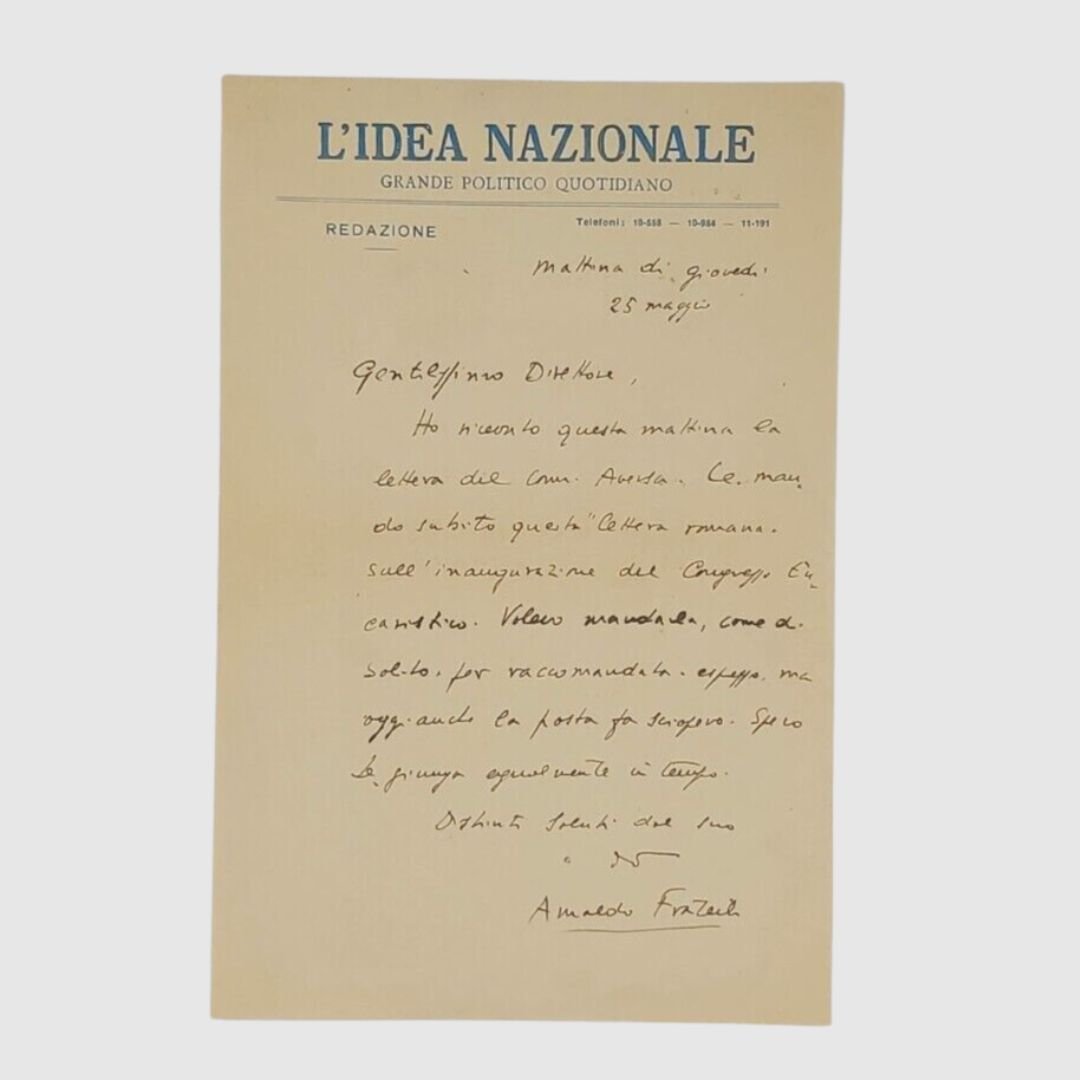 L'IDEA NAZIONALE
GRANDE POLITICO QUOTIDIANO
REDAZIONE
Telefoni: 10-558 — 10-984 — 11-191
Mattina di giovedì
25 maggio
Gentilissimo Direttore,
Ho ricevuto questa mattina la
lettera del Comm. Aversa. Le man-
do subito questa "lettera romana"
sull'inaugurazione del Congresso Eu-
caristico. Volevo mandarla, come di
solito, per raccomandata-espresso, ma
oggi anche la posta fa sciopero. Spero
Le giunga egualmente in tempo.
Distinti saluti dal suo
Arnaldo Frateili